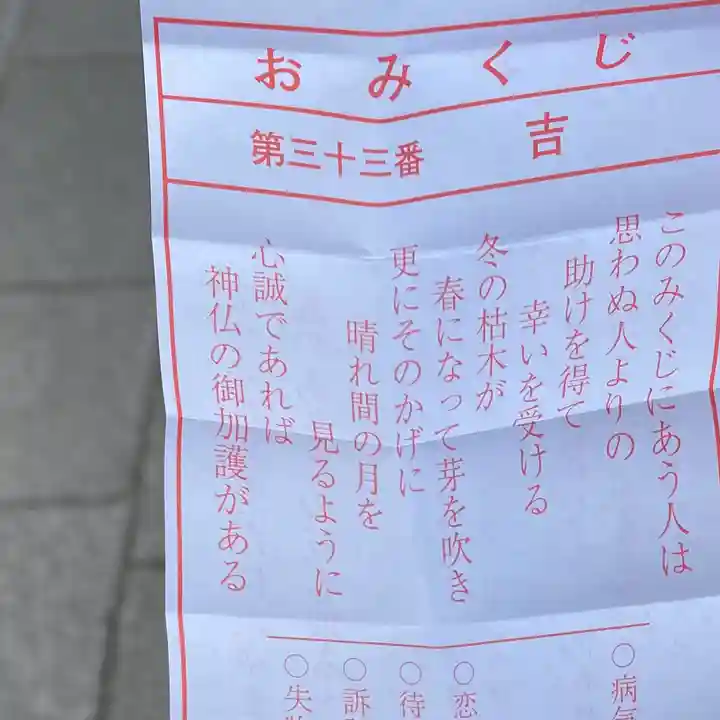 おみくじ
第三十三番 吉
このみくじにあう人は
思わぬ人よりの
助けを得て
幸いを受ける
冬の枯木が
春になって芽を吹き
更にそのかげに
晴れ間の月を
見るように
心誠であれば
神仏の御加護がある
○病気
○恋
○待
○訴
○失